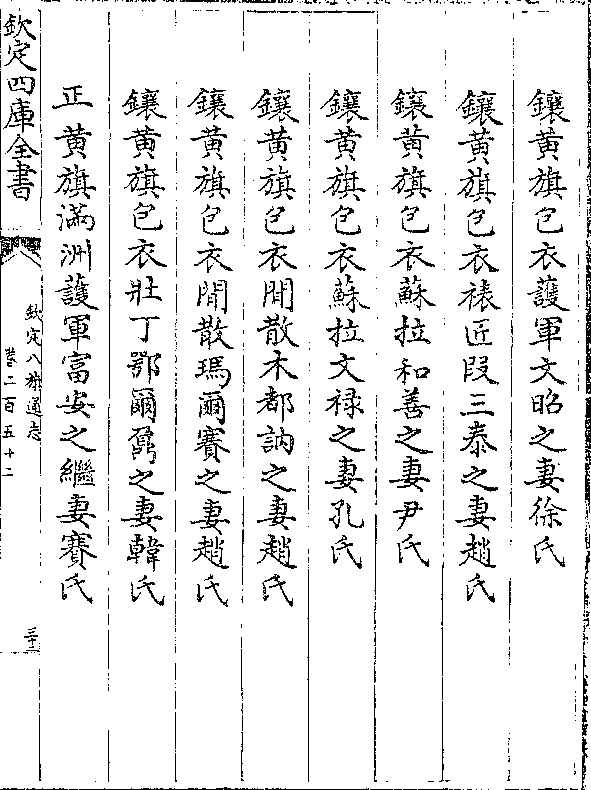 鑲黃旗包衣護軍文昭之妻徐氏
鑲黃旗包衣裱匠段三泰之妻趙氏
鑲黃旗包衣蘇拉和善之妻尹氏
鑲黃旗包衣蘇拉文祿之妻孔氏
鑲黃旗包衣閒散木都訥之妻趙氏
鑲黃旗包衣閒散瑪爾賽之妻趙氏
鑲黃旗包衣壯丁鄂爾鼐之妻韓氏
正黃旗滿洲護軍富安之繼妻賽氏
欽定四庫全書
欽定八旗通志
卷二百五十二